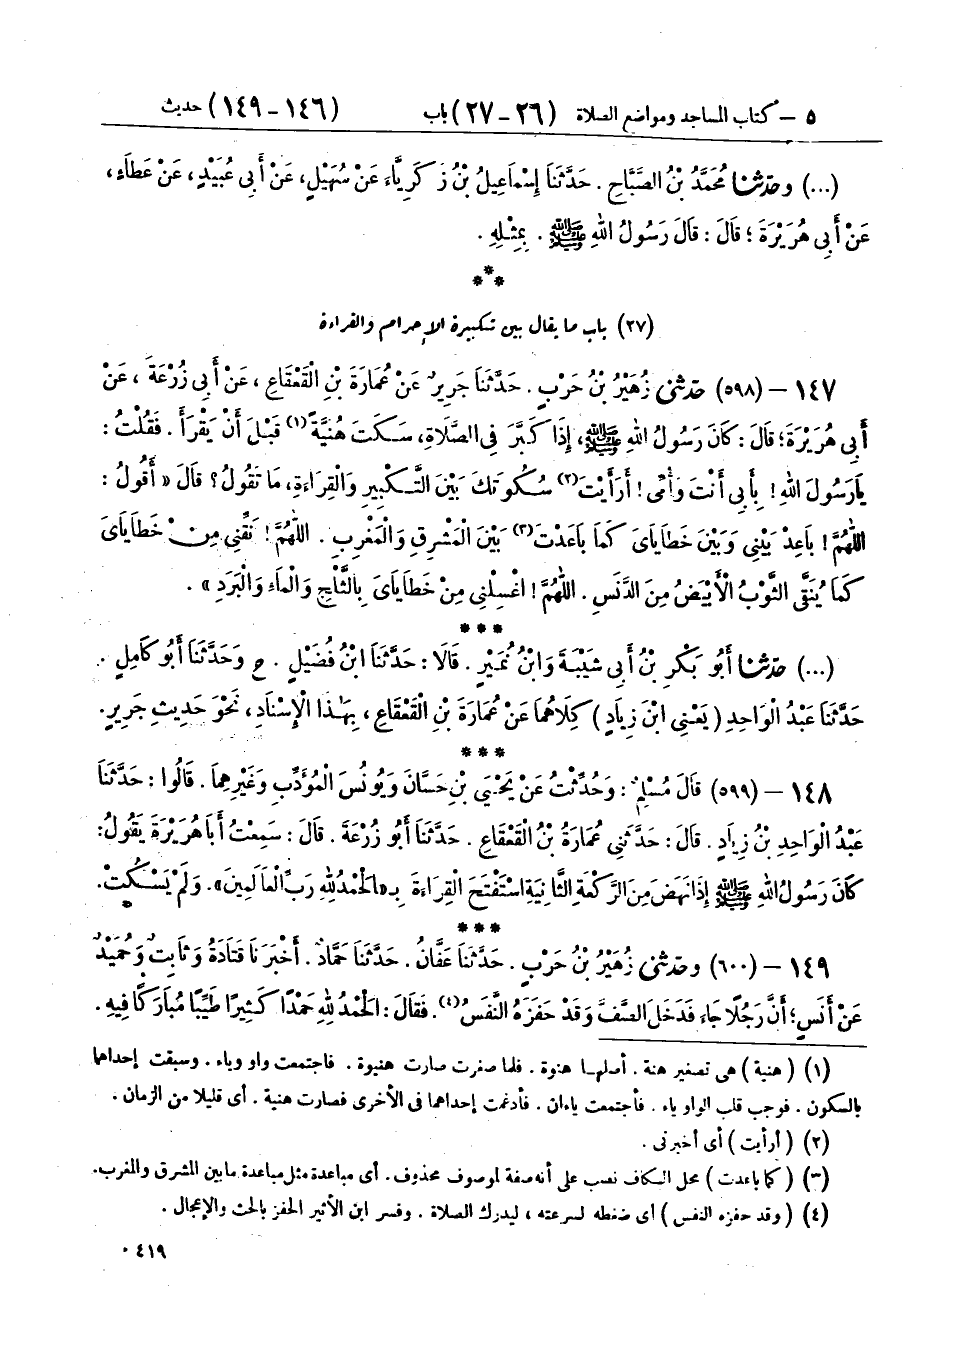 ٥ – كتاب المساجد ومواضع الصلاة (٢٦ – ٢٧) باب (١٤٦ – ١٤٩) حديث
(...) وحَدَّثَنَا مُحَمَّدُ بْنُ الصَّبَّاحِ . حَدَّثَنَا إِسْمَاعِيلُ بْنُ زَكَرِيَّاءَ عَنْ سُهَيْلٍ، عَنْ أَبِي عُبَيْدٍ، عَنْ عَطَاءٍ،
عَنْ أَبِي هُرَيْرَةَ ؛ قَالَ : قَالَ رَسُولُ اللهِ ﷺ . بِمِثْلِهِ .
***
(٢٧) باب ما يقال بين تكبيرة الإحرام والقراءة
١٤٧ – (٥٩٨) حَدَّثَنِي زُهَيْرُ بْنُ حَرْبٍ . حَدَّثَنَا جَرِيرٌ عَنْ عُمَارَةَ بْنِ الْقَعْقَاعِ ، عَنْ أَبِي زُرْعَةَ ، عَنْ
أَبِي هُرَيْرَةَ؛ قَالَ : كَانَ رَسُولُ اللهِ ﷺ، إِذَا كَبَّرَ فِي الصَّلَاةِ، سَكَتَ هُنَيَّةً (١) قَبْلَ أَنْ يَقْرَأَ . فَقُلْتُ :
يَا رَسُولَ اللهِ! بِأَبِي أَنْتَ وَأُمِّي! أَرَأَيْتَ (٢) سُكُوتَكَ بَيْنَ التَّكْبِيرِ وَالْقِرَاءَةِ، مَا تَقُولُ؟ قَالَ « أَقُولُ :
اللّٰهُمَّ! بَاعِدْ بَيْنِي وَبَيْنَ خَطَايَايَ كَمَا بَاعَدْتَ (٣) بَيْنَ الْمَشْرِقِ وَالْمَغْرِبِ . اللّٰهُمَّ! نَقِّنِي مِنْ خَطَايَايَ
كَمَا يُنَقَّى الثَّوْبُ الْأَبْيَضُ مِنَ الدَّنَسِ . اللّٰهُمَّ! اغْسِلْنِي مِنْ خَطَايَايَ بِالثَّلْجِ وَالْمَاءِ وَالْبَرَدِ » .
***
(...) حَدَّثَنَا أَبُو بَكْرِ بْنُ أَبِي شَيْبَةَ وَابْنُ نُمَيْرٍ . قَالَا : حَدَّثَنَا ابْنُ فُضَيْلٍ . ح وَحَدَّثَنَا أَبُو كَامِلٍ .
حَدَّثَنَا عَبْدُ الْوَاحِدِ (يَعْنِي ابْنَ زِيَادٍ) كِلَاهُمَا عَنْ عُمَارَةَ بْنِ الْقَعْقَاعِ، بِهٰذَا الْإِسْنَادِ، نَحْوَ حَدِيثِ جَرِيرٍ.
***
١٤٨ – (٥٩٩) قَالَ مُسْلِمٌ : وَحُدِّثْتُ عَنْ يَحْيَى بْنِ حَسَّانَ وَيُونُسَ الْمُؤَدِّبِ وَغَيْرِهِمَا . قَالُوا : حَدَّثَنَا
عَبْدُ الْوَاحِدِ بْنُ زِيَادٍ . قَالَ : حَدَّثَنِي عُمَارَةُ بْنُ الْقَعْقَاعِ . حَدَّثَنَا أَبُو زُرْعَةَ . قَالَ : سَمِعْتُ أَبَا هُرَيْرَةَ يَقُولُ:
كَانَ رَسُولُ اللهِ ﷺ إِذَا نَهَضَ مِنَ الرَّكْعَةِ الثَّانِيَةِ اسْتَفْتَحَ الْقِرَاءَةَ بِـ«الْحَمْدُ لِلهِ رَبِّ الْعَالَمِينَ». وَلَمْ يَسْكُتْ.
***
١٤٩ – (٦٠٠) وحَدَّثَنِي زُهَيْرُ بْنُ حَرْبٍ . حَدَّثَنَا عَفَّانُ . حَدَّثَنَا حَمَّادٌ . أَخْبَرَنَا قَتَادَةُ وَثَابِتٌ وَحُمَيْدٌ
عَنْ أَنَسٍ؛ أَنَّ رَجُلًا جَاءَ فَدَخَلَ الصَّفَّ وَقَدْ حَفَزَهُ النَّفَسُ (٤). فَقَالَ : الْحَمْدُ لِلهِ حَمْدًا كَثِيرًا طَيِّبًا مُبَارَكًا فِيهِ .
(١) (هنية) هى تصغير هنة . أصلها هنوة . فلما صغرت صارت هنيوة . فاجتمعت واو وياء . وسبقت إحداهما
بالسكون . فوجب قلب الواو ياء . فاجتمعت ياءان . فأدغمت إحداهما فى الأخرى فصارت هنية . أى قليلا من الزمان .
(٢) (أرأيت) أى أخبرنى .
(٣) (كما باعدت) محل الكاف نصب على أنه صفة لموصوف محذوف. أى مباعدة مثل مباعدة ما بين المشرق والمغرب.
(٤) (وقد حفزه النفس) أى ضغطه لسرعته ، ليدرك الصلاة . وفسر ابن الأثير الحفز بالحث والإعجال .
٤١٩